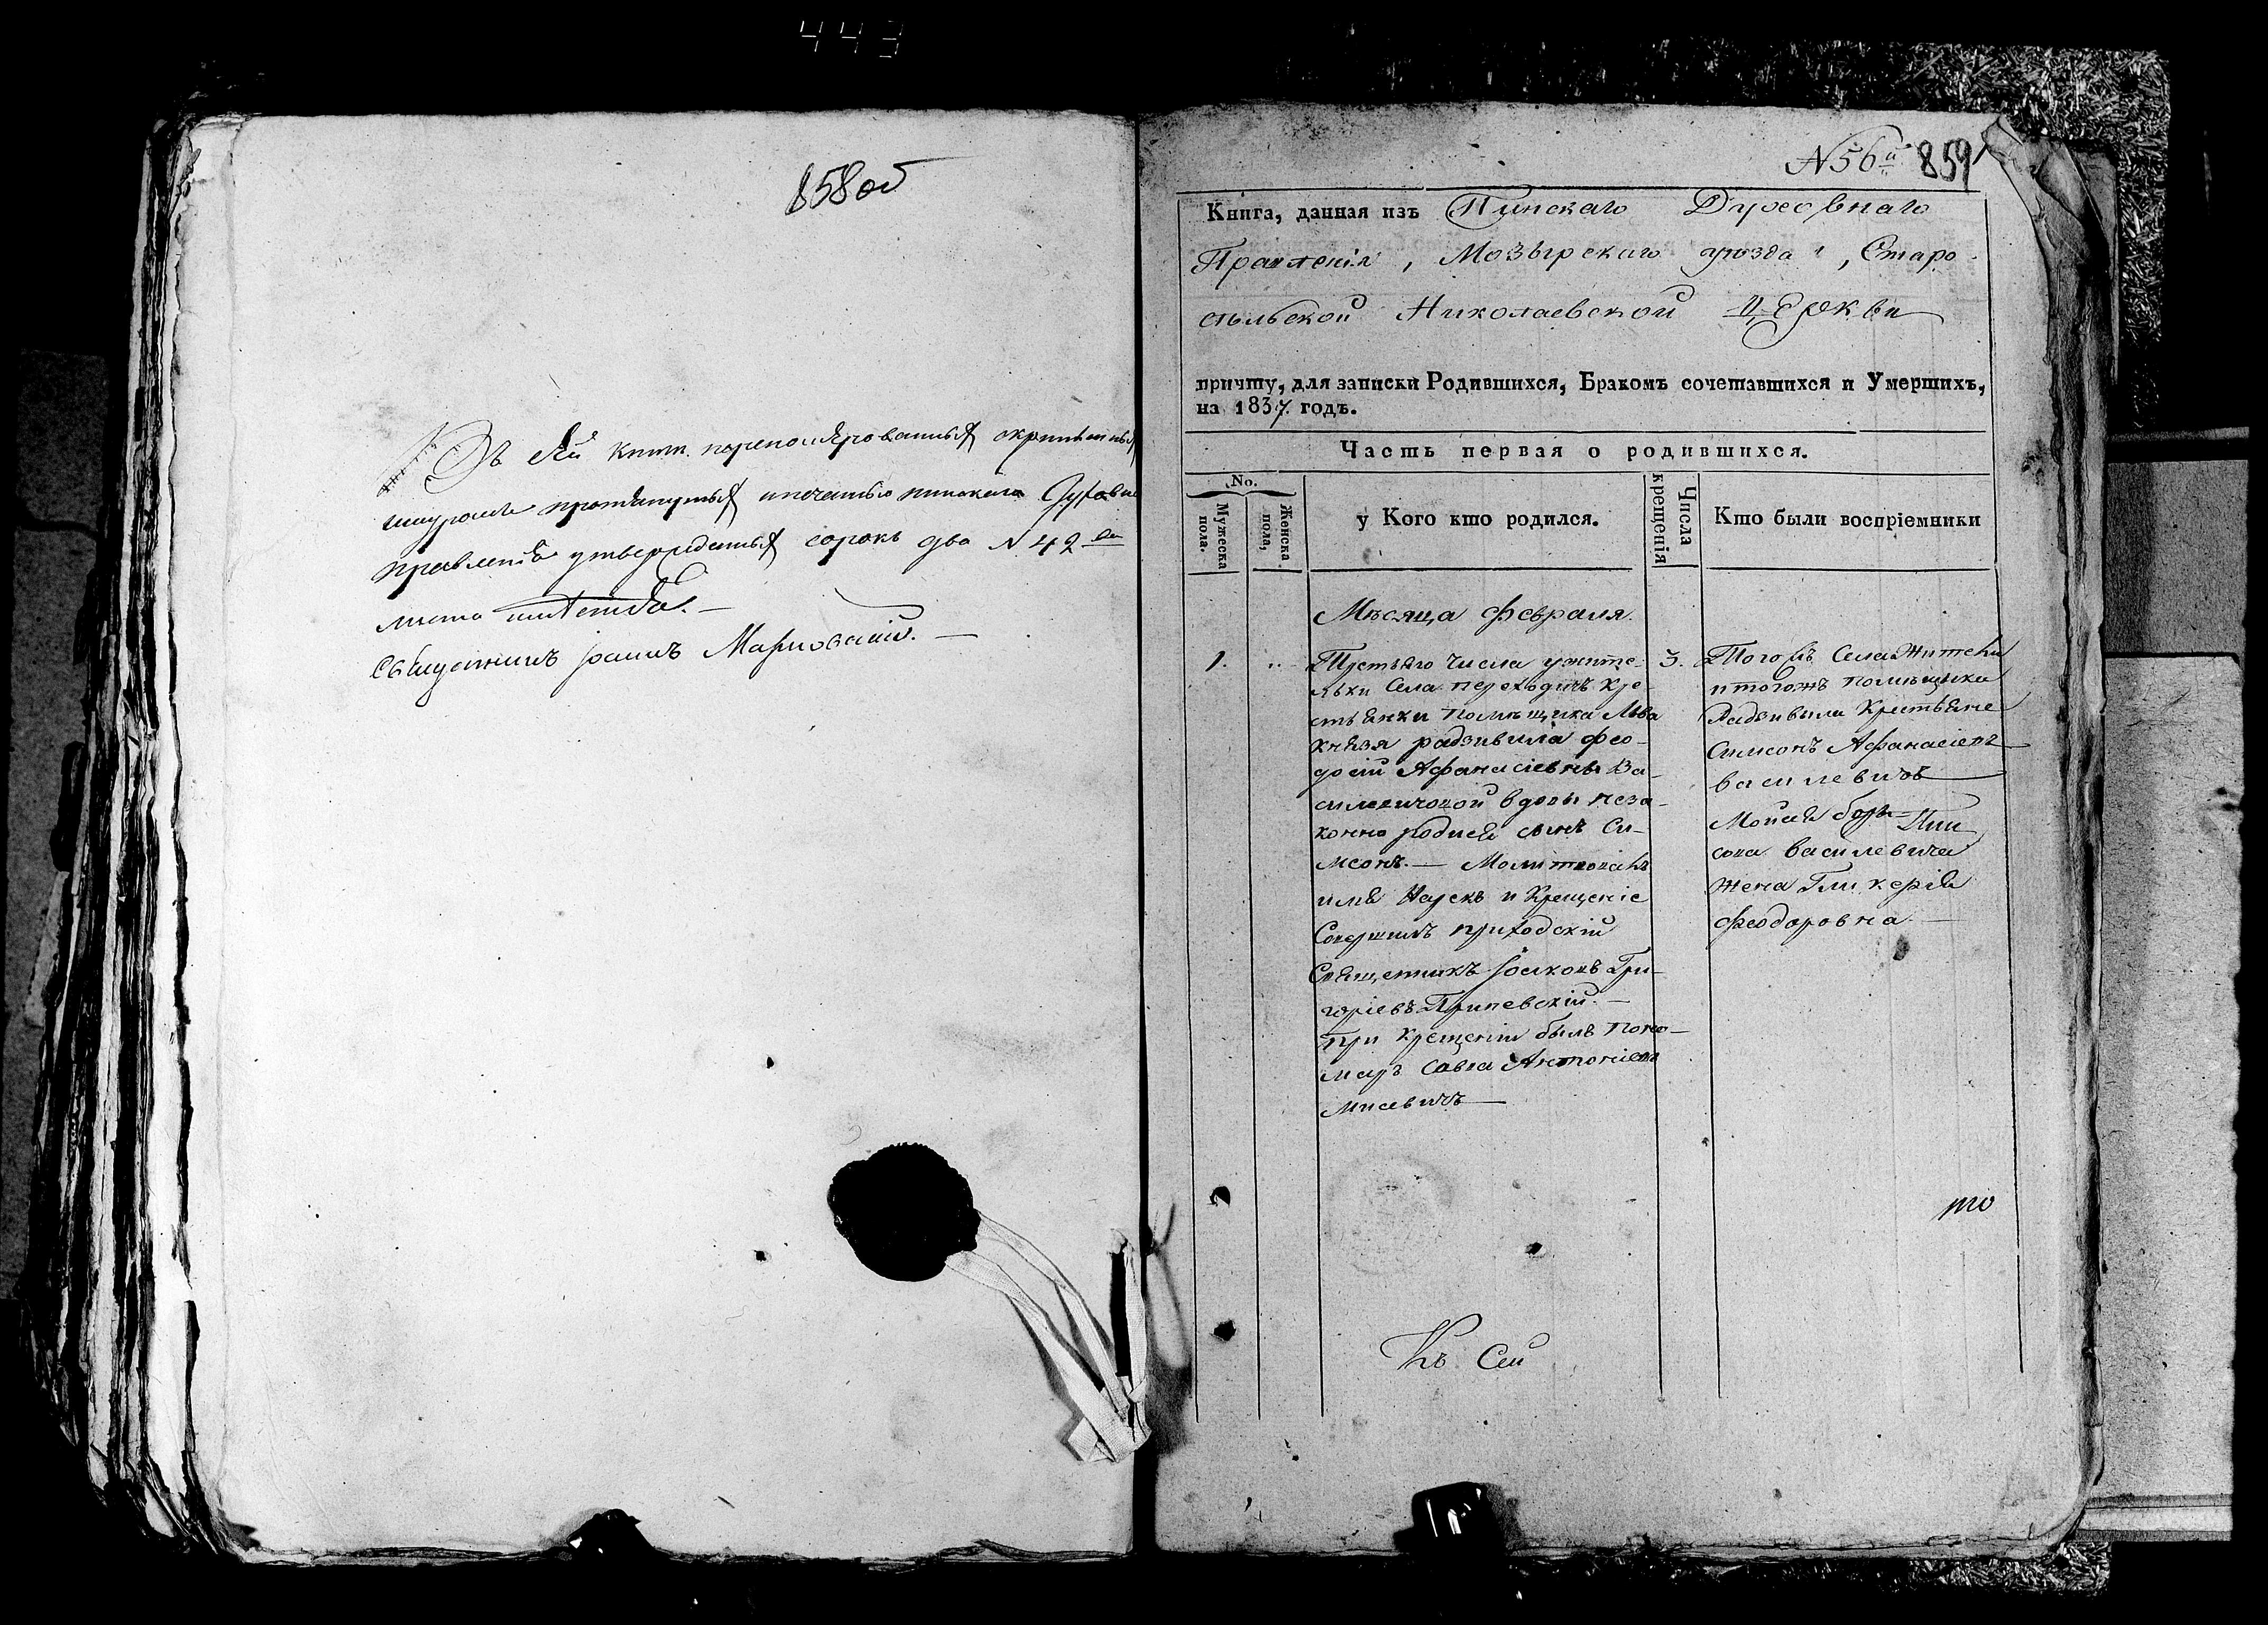 443
858 об
Въ сей книгѣ переномерованныхъ скрепленныхъ
шнуромъ протянутыхъ и печатью пинскаго Духовна
правленія утвержденныхъ сорокъ два N 42
листа
Священникъ Іоаннъ
N 56й 859
Книга, данная изъ Пинскаго Духовнаго
Правленія, Мозырскаго уѣзда, Старо
сельской Николаевской Церкви
причту, для записки Родившихся, Бракомъ сочетавшихся и Умершихъ,
на 1837 годъ.
Часть первая о родившихся.
No.
Мужеска пола.
Женска пола,
у Кого кто родился.
Числа крещенія
Кто были воспріемники
Мѣсяца Февраля.
1. Третьяго числа у жите-
льки Села переходичъ Кре-
стьянки помѣщика Льва
Князя радзивила Фео-
досіи Афанасіевны Ва-
силевичовой вдовы неза-
конно родися сынъ Си-
меонъ. — Молитвовалъ
имя Нарекъ и Крещеніе
Совершилъ приходскій
Священникъ Іоаковъ Гри-
горіевъ —
При Крещеніи былъ Поно-
марь Савва Антоніевъ
Мисевичъ —
3. Тогожъ Села Жители
и тогожъ помѣщика
Радзивила Крестьяне
Симеонъ Афанасіевъ
василевичъ
Василевича
жена Гликерія
Феодоровна. —
то
Къ Сей